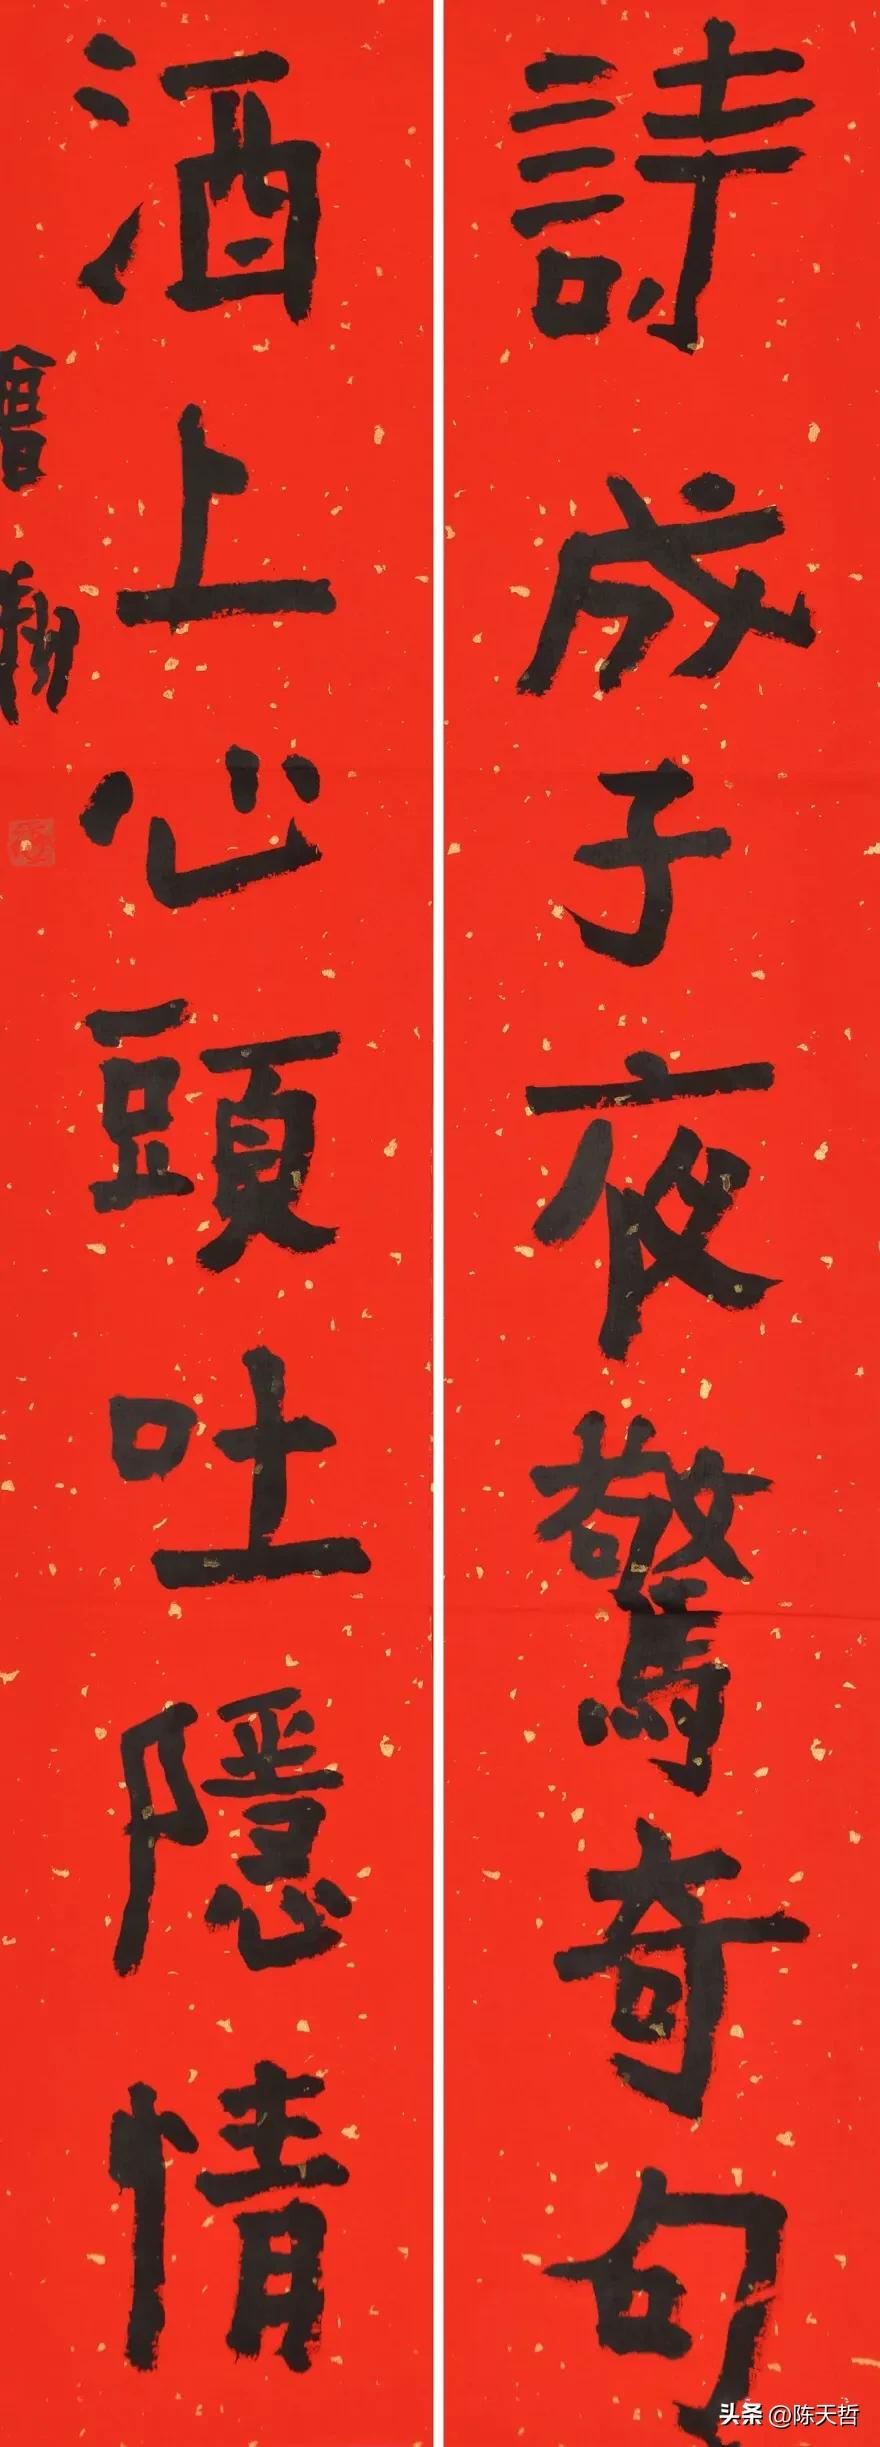 詩成子夜驚奇句
酒上心頭吐隱情
曾翔
头条 @陈天哲